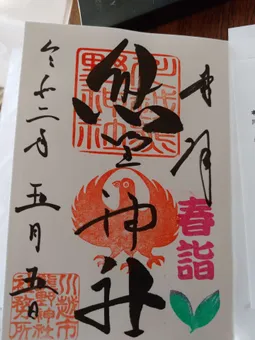 奉拝
春詣
川越熊
野神社
熊野神社
令和二年五月五日
川越市
熊野神社
社務所